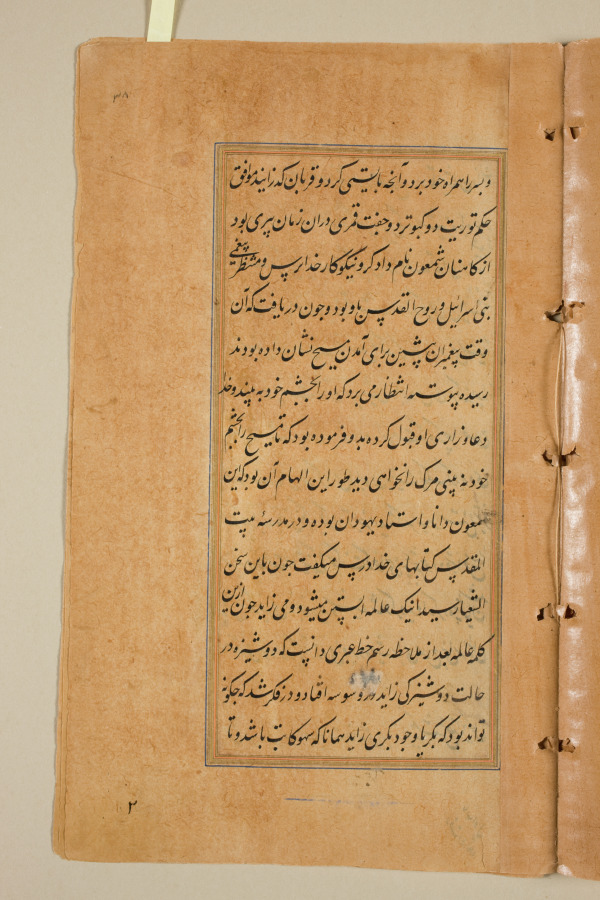 ۳۸
و پسر را همراه خود برد و آنچه بایستی کرد و قربان گذرانید موافق
حکم توریت دو کبوتر دو جفت قمری دران زمان پیری بود
از کاهنان شمعون نام داد کر و نیکوکار خدا ترس و منتظر پیغمبر
بنی اسرائیل و روح القدس با او بود و چون دریافت که آن
وقت پیغمبران پیشین برای آمدن مسیح نشان داده بودند
رسیده پیوسته انتظار می برد که او را بچشم خود به بیند و خدا
دعا و زاری او قبول کرده بدو فرموده بود که تا مسیح را بچشم
خود نه بینی مرک را نخواهی دید طور این الهام آن بود که این
شمعون دانا و استاد یهودان بوده و در مدرسهٔ بیت
المقدس کتابهای خدا درس میگفت چون باین سخن
اشعیا رسید اینک عالمه ابستن میشود و می زاید چون ازین
کلمه عالمه بعد از ملاحظه رسم خط عبری دانست که دوشیزه در
حالت دوشیزکی زاید در وسوسه افتاد و در فکر شد که چکونه
تواند بود که بکر با وجود بکری زاید همانا که سهو کاتب باشد و تا
۲